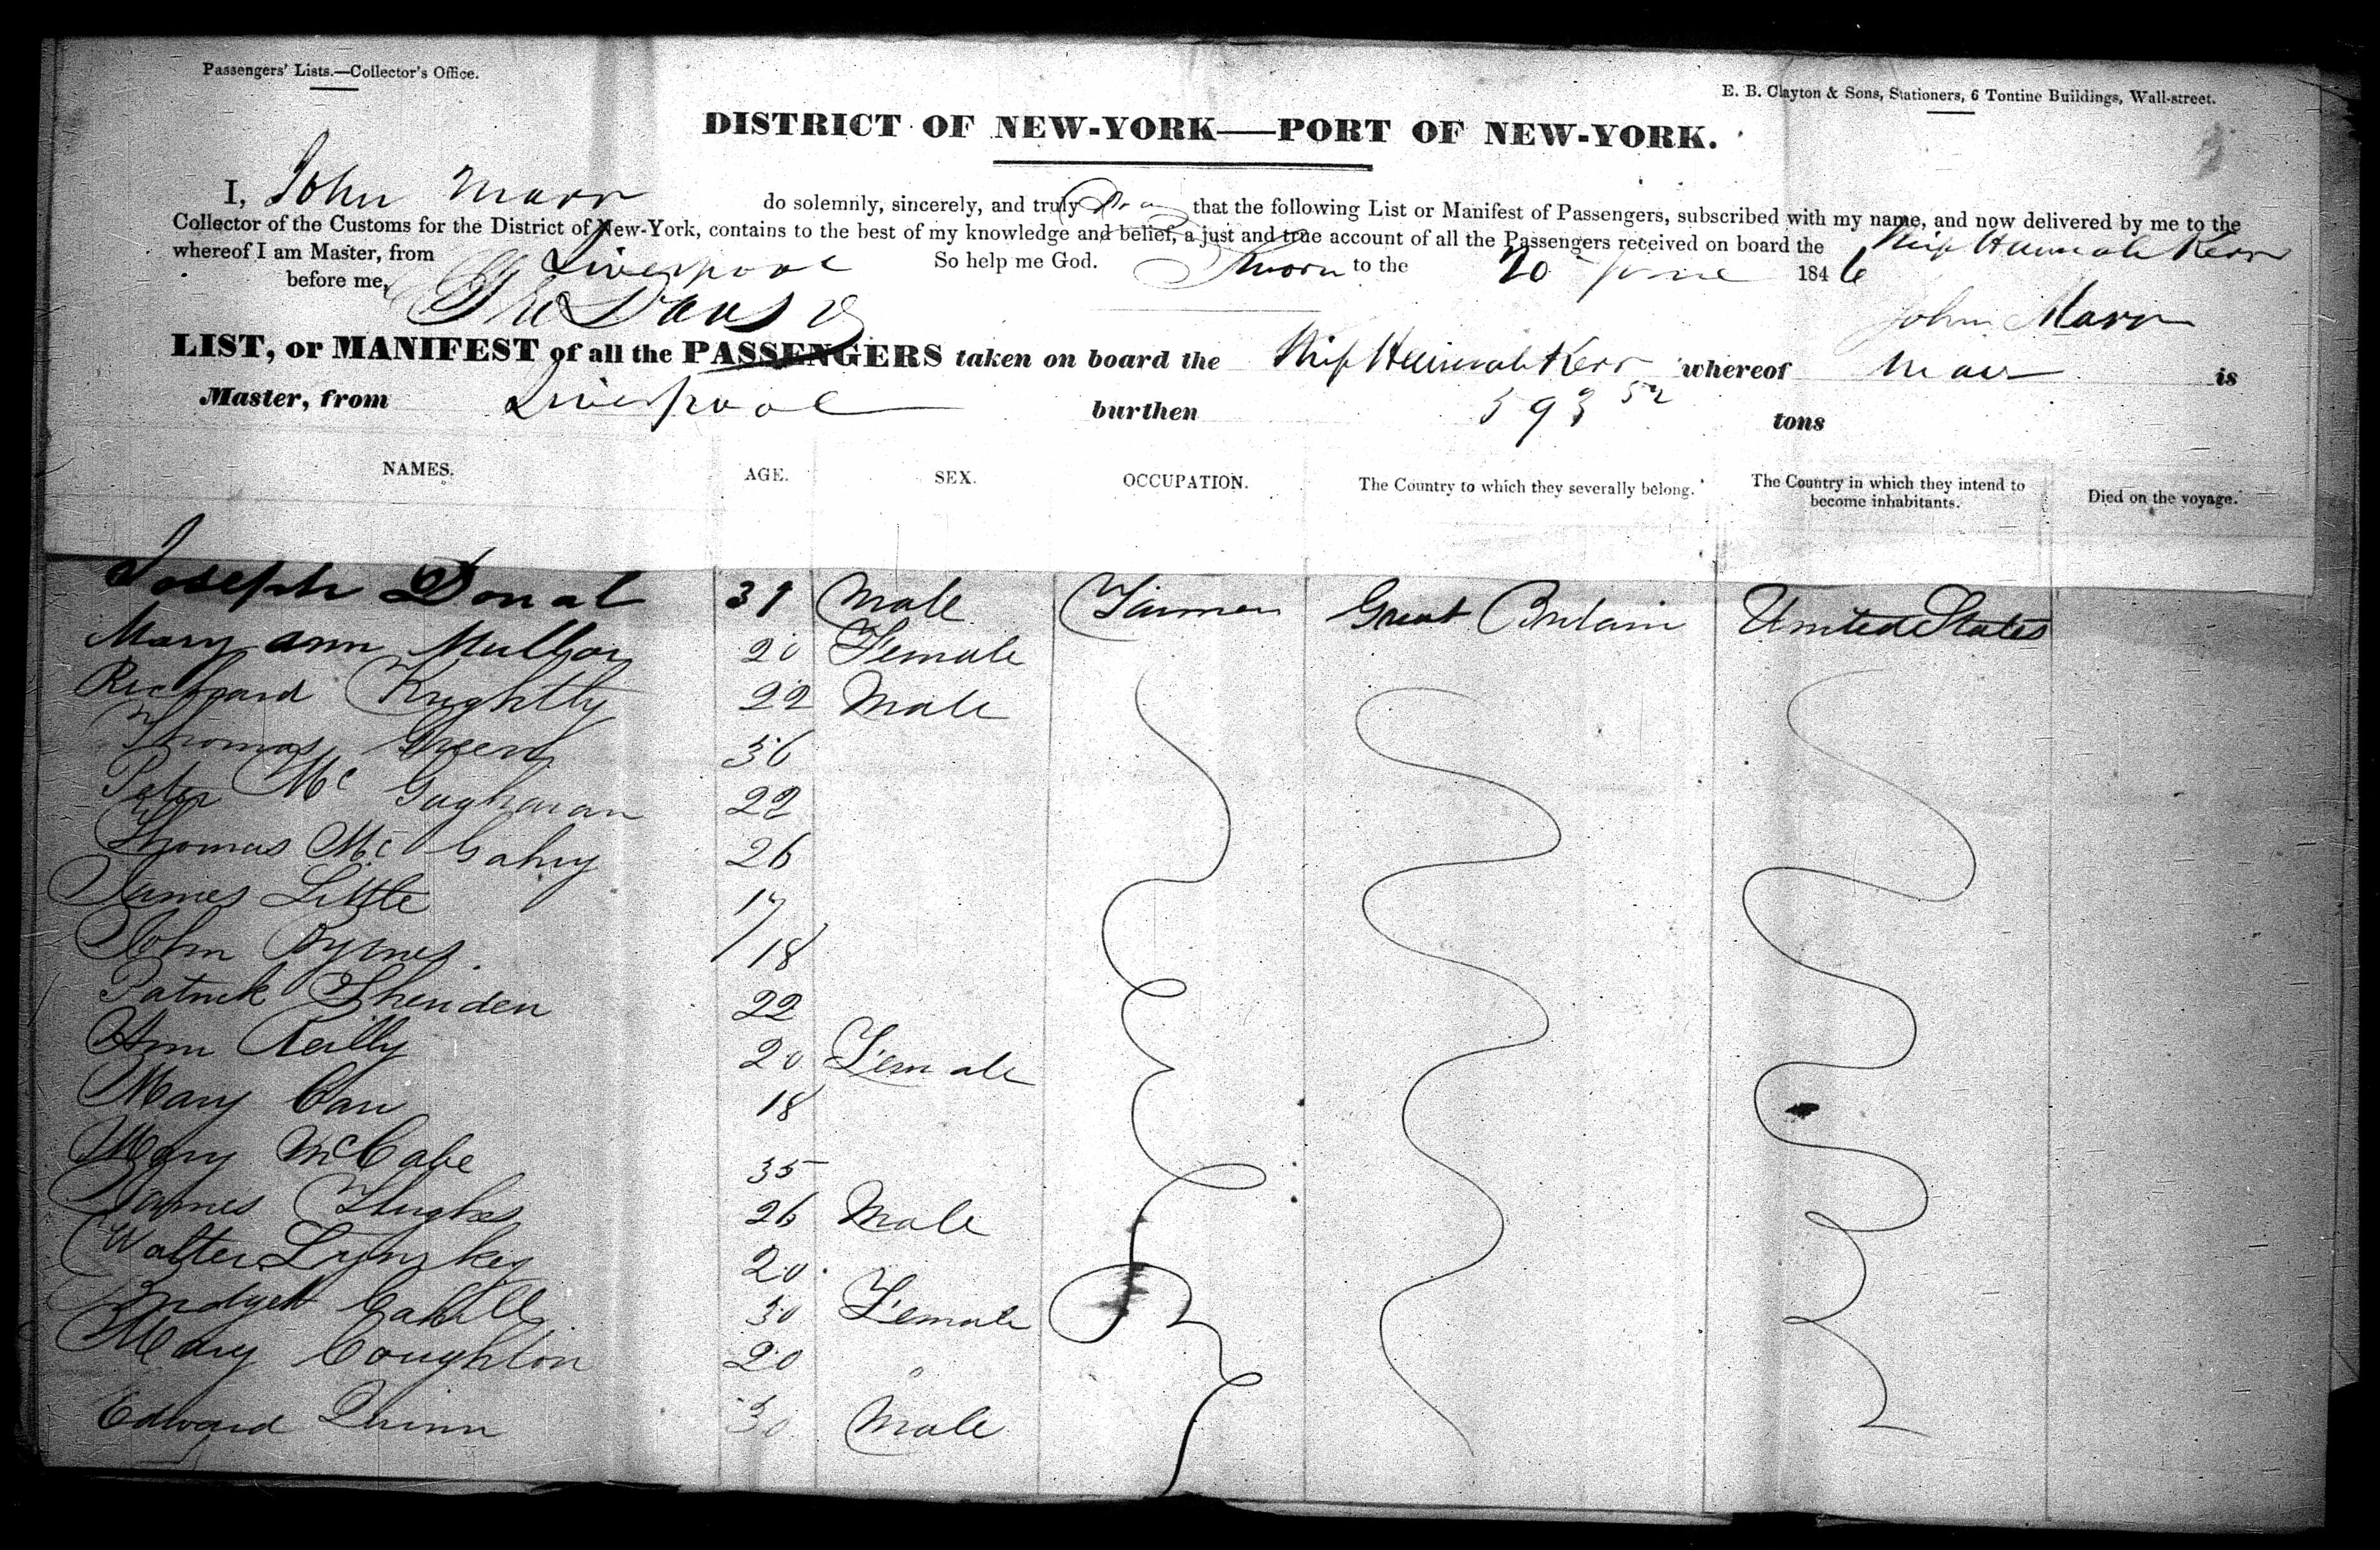 Passengers' Lists.—Collector's Office.
E. B. Clayton & Sons, Stationers, 6 Tontine Buildings, Wall-street.
DISTRICT OF NEW-YORK—PORT OF NEW-YORK.
I, John Marr do solemnly, sincerely, and truly that the following List or Manifest of Passengers, subscribed with my name, and now delivered by me to the
Collector of the Customs for the District of New-York, contains to the best of my knowledge and belief, a just and true account of all the Passengers received on board the Ship Hannah Kerr
whereof I am Master, from Liverpool So help me God.
Sworn to the 20 June 1846
before me,
John Marr
LIST, or MANIFEST of all the PASSENGERS taken on board the Ship Hannah Kerr whereof Marr is
Master, from Liverpool burthen 593 52 tons
NAMES. AGE. SEX. OCCUPATION. The Country to which they severally belong. The Country in which they intend to become inhabitants. Died on the voyage.
Joseph Donal 31 Male Farmer Great Britain United States
Mary Ann 20 Female
Richard Knightly 22 Male
Thomas Green 36
Peter Mc 22
Thomas Mc Gahny 26
James Little 17
John Byrnes 18
Patrick Sheriden 22
Ann Reilly 20 Female
Mary Carr 18
Mary McCabe 35
James Hughes 26 Male
Walter Lynskey 20
Bridgett Cahill 30 Female
Mary Coughlon 20 "
Edward Quinn 30 Male